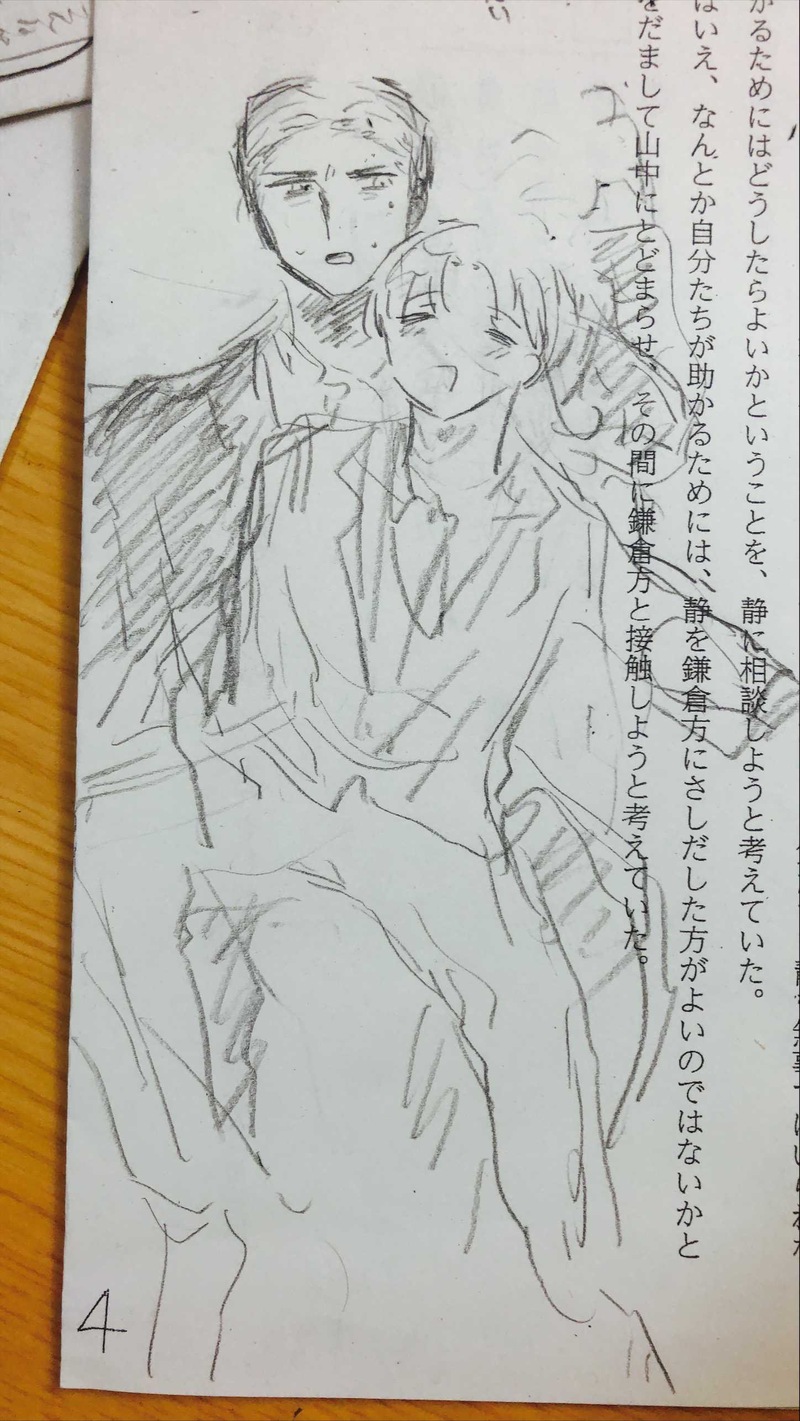 がるためにはどうしたらよいかということを、静に相談しようと考えていた。
はいえ、なんとか自分たちが助かるためには、静を鎌倉方にさしだした方がよいのではないかと
をだまして山中にとどまらせ、その間に鎌倉方と接触しようと考えていた。
4